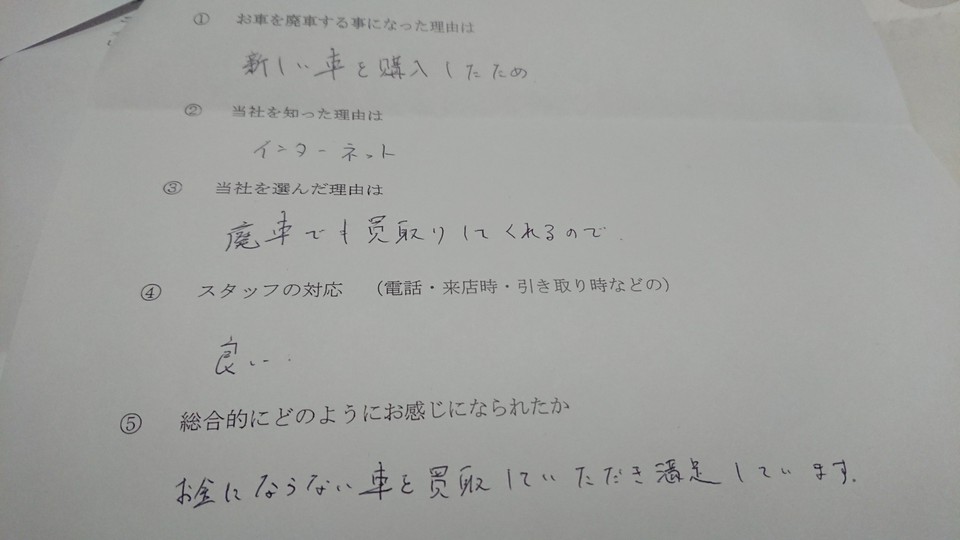 ① お車を廃車する事になった理由は
新しい車を購入したため
② 当社を知った理由は
インターネット
③ 当社を選んだ理由は
廃車でも買取りしてくれるので.
④ スタッフの対応 (電話・来店時・引き取り時などの)
良い.
⑤ 総合的にどのようにお感じになられたか
お金にならない車を買取していただき満足しています.